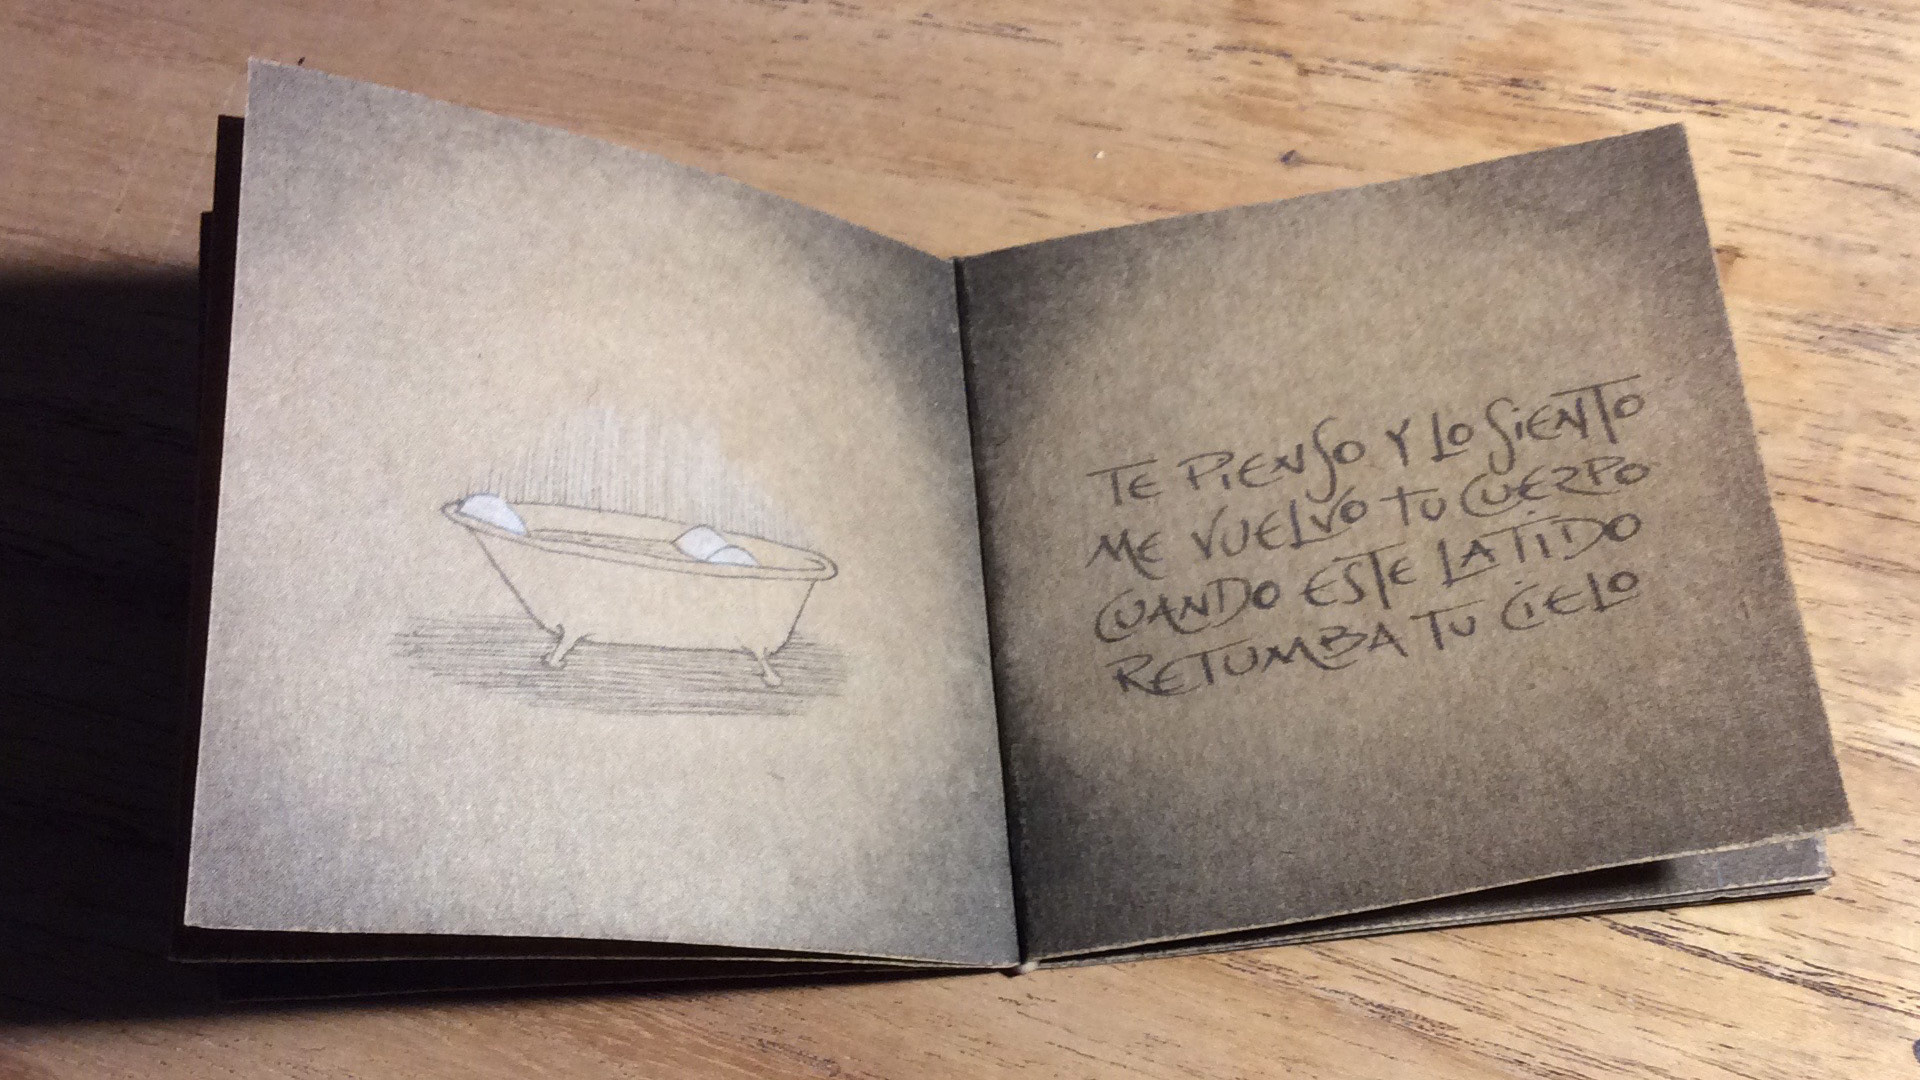 TE PIENSO Y LO SIENTO
ME VUELVO TU CUERPO
CUANDO ESTE LATIDO
RETUMBA TU CIELO